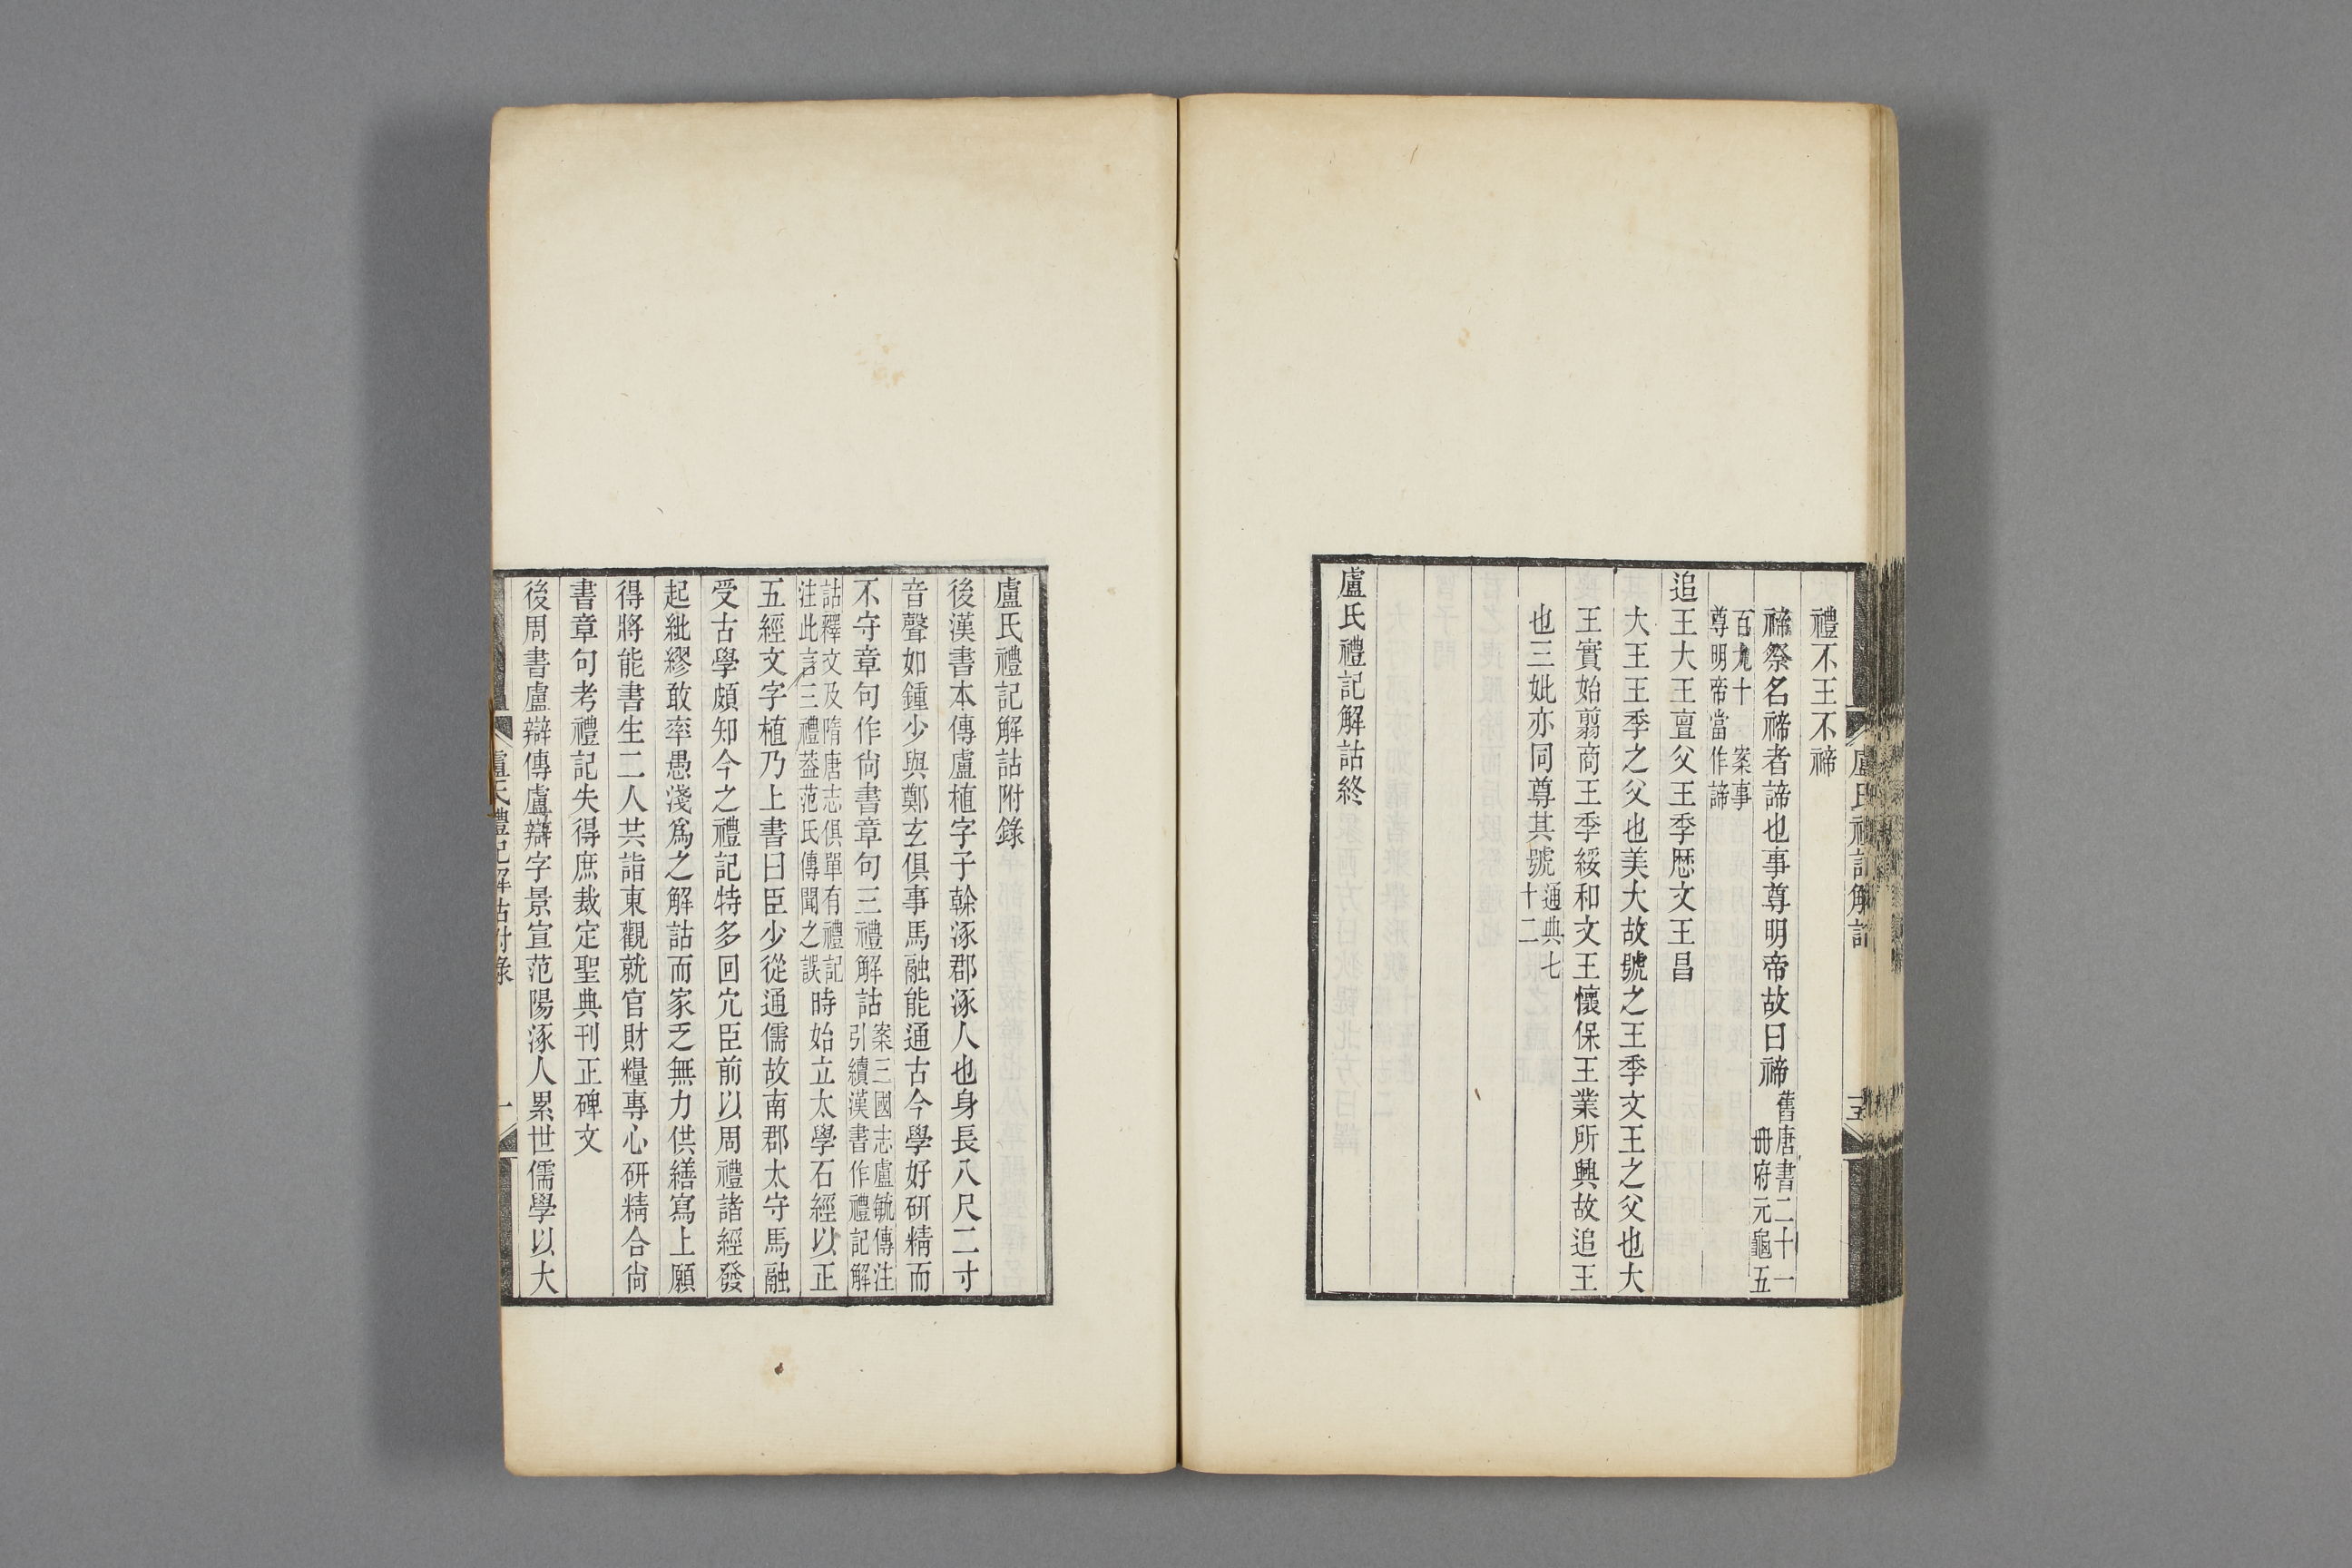 禮不王不禘
禘祭名禘者諦也事尊明帝故曰禘舊唐書二十一冊府元龜五
百九十 案事尊明帝當作諦
追王大王亶父王季歴文王昌
大王王季之父也美大故號之王季文王之父也大
王實始翦商王季綏和文王懷保王業所興故追王
也三妣亦同尊其號通典七十二
盧氏禮記解詁終
盧氏禮記解詁
十五
盧氏禮記解詁附錄
後漢書本傳盧植字子榦涿郡涿人也身長八尺二寸
音聲如鍾少與鄭玄俱事馬融能通古今學好研精而
不守章句作尙書章句三禮解詁案三國志盧毓傳注引續漢書作禮記解
詁釋文及隋唐志俱單有禮記注此言三禮葢范氏傳聞之誤時始立太學石經以正
五經文字植乃上書曰臣少從通儒故南郡太守馬融
受古學頗知今之禮記特多回宂臣前以周禮諸經發
起紕繆敢率愚淺爲之解詁而家乏無力供繕寫上願
得將能書生二人共詣東觀就官財糧專心研精合尙
書章句考禮記失得庶裁定聖典刊正碑文
後周書盧辯傳盧辯字景宣范陽涿人累世儒學以大
盧氏禮記解詁附錄
一